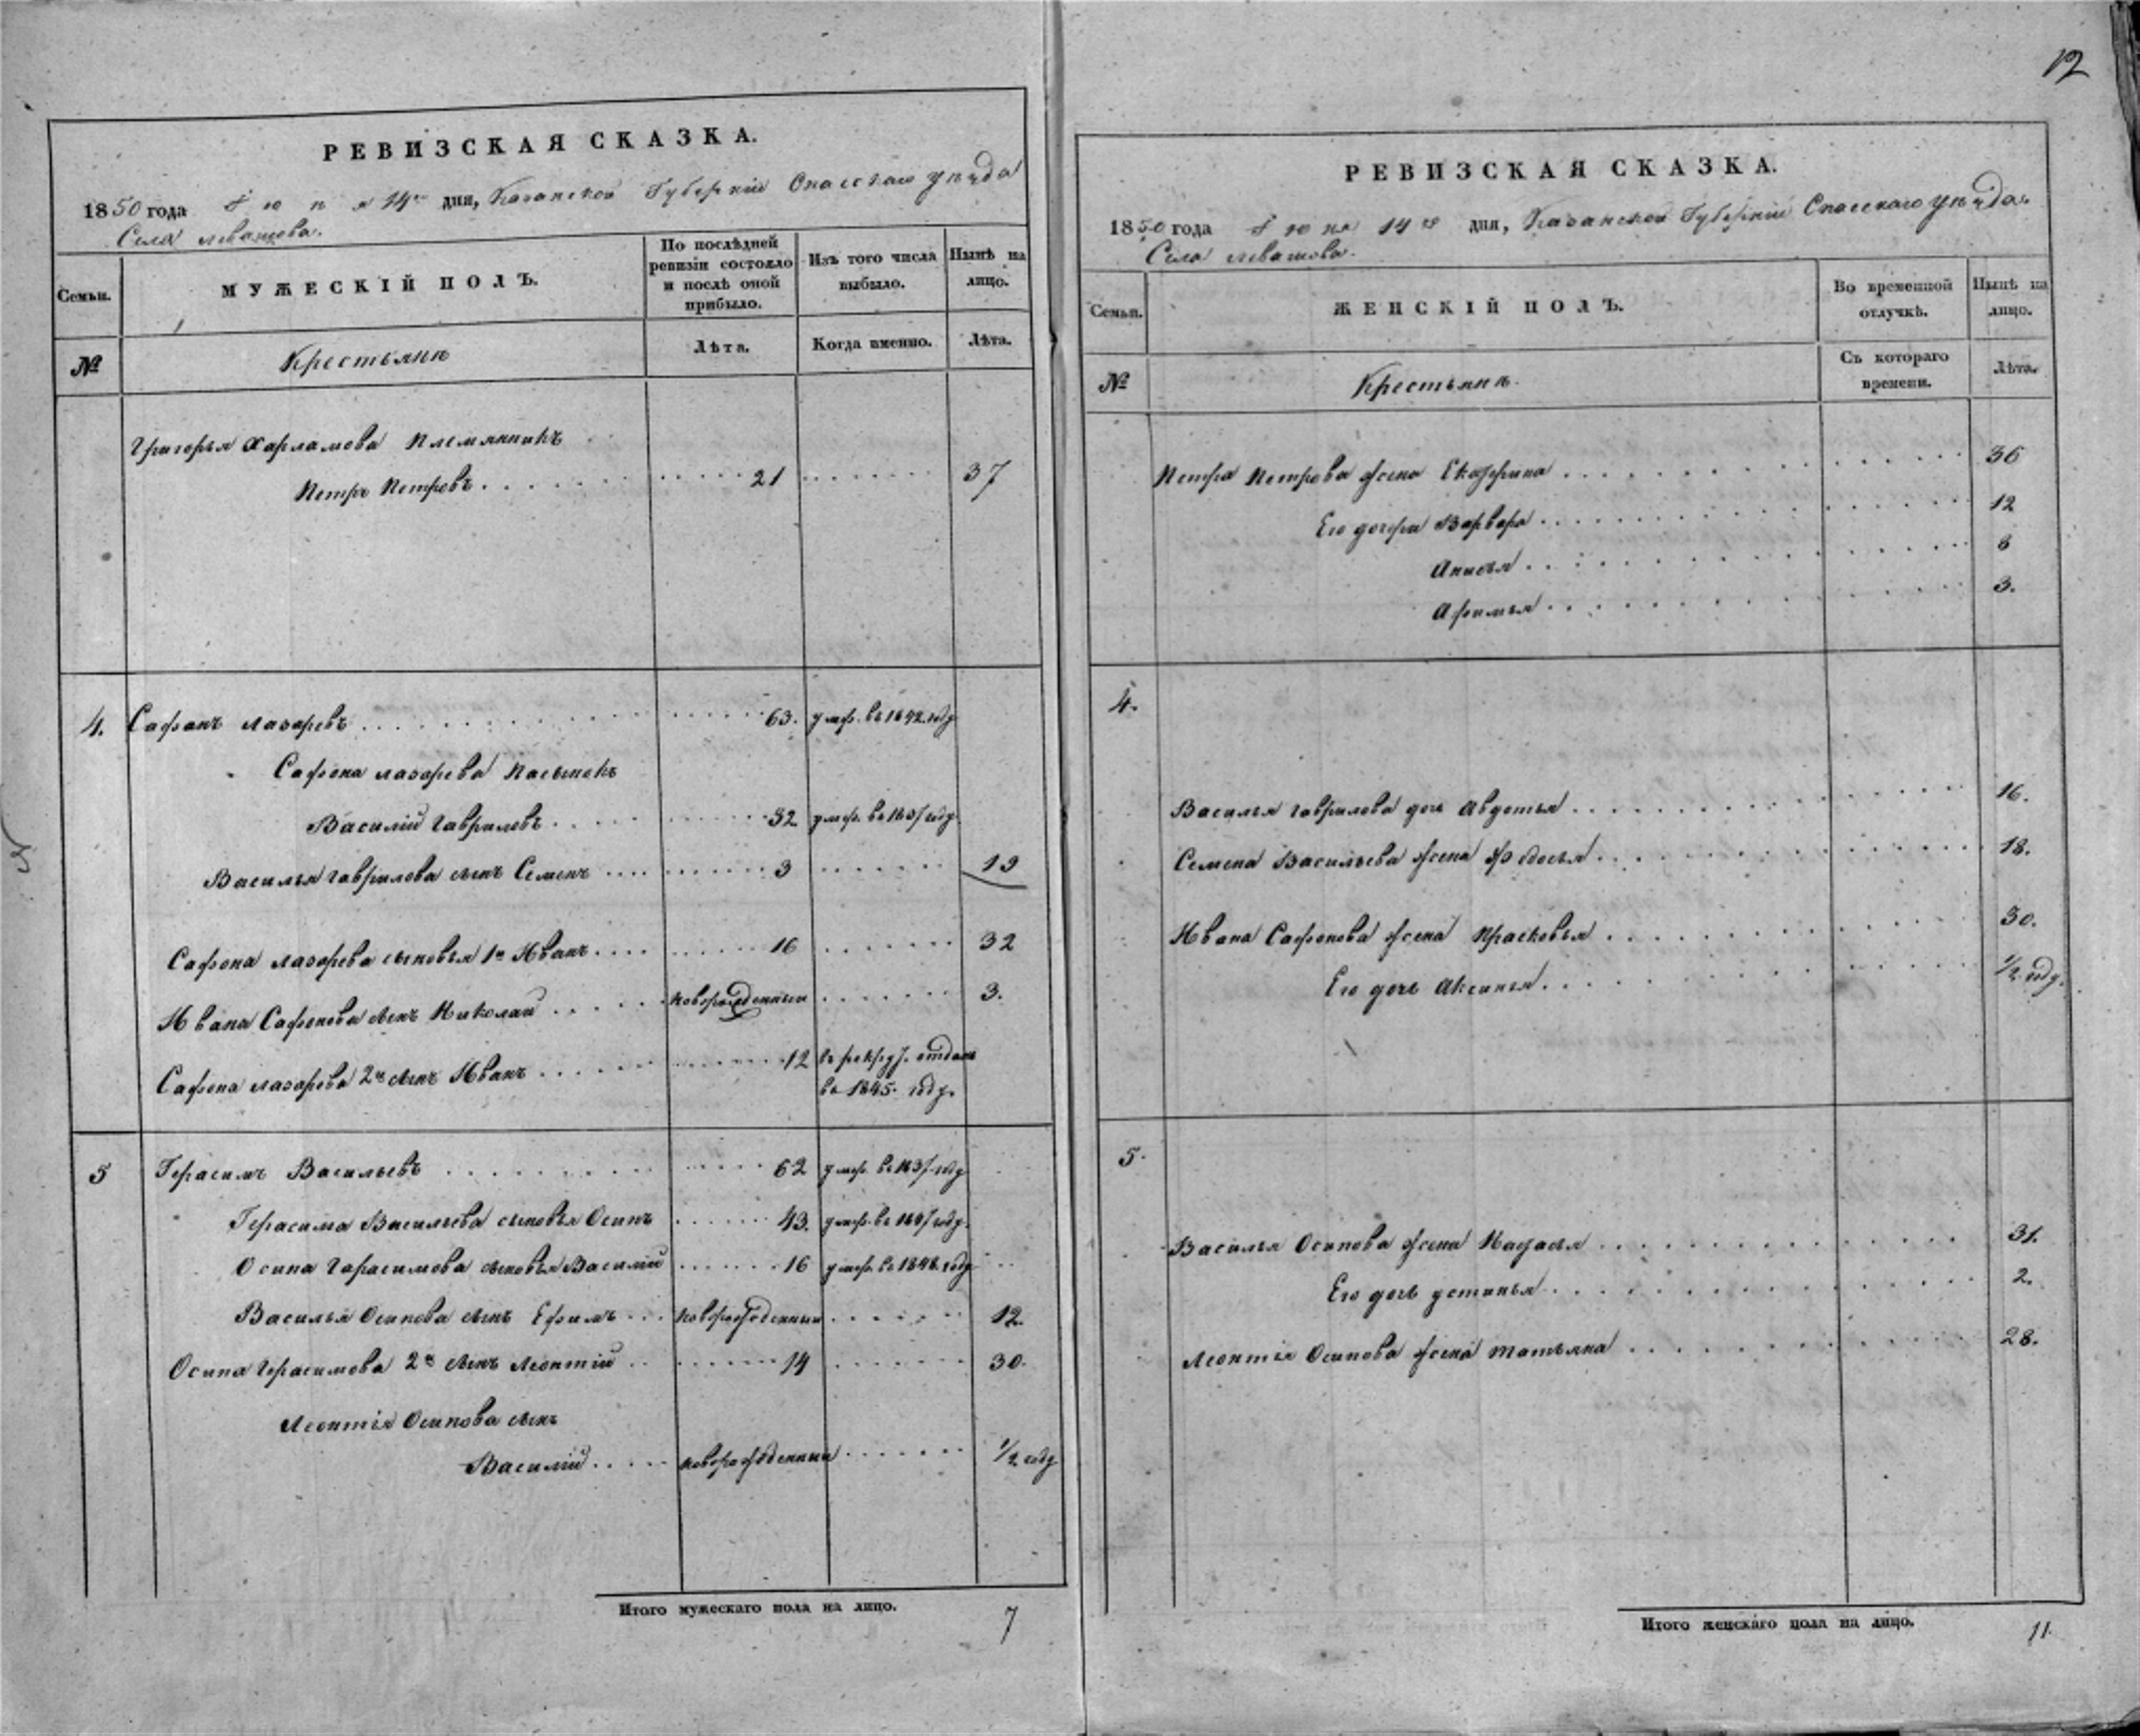 12
РЕВИЗСКАЯ СКАЗКА.
1850 года Іюня 14го дня, Казанской Губерніи Спасскаго уѣзда
Села Левашова.
Семьи. МУЖЕСКІЙ ПОЛЪ. По послѣдней ревизіи состояло и послѣ оной прибыло. Изъ того числа выбыло. Нынѣ на лицо.
№ Крестьянѣ Лѣта. Когда именно. Лѣта.
Григорья Харламова Племянникъ
Петръ Петровъ 21 37
4. Сафонъ Лазаревъ 63. умер. въ 1842 году
Сафона Лазарева Пасынокъ
Василій Гавриловъ 32 умер. въ 1837 году
Василья Гаврилова сынъ Семенъ 3 19
Сафона Лазарева сыновья 1й Иванъ 16 32
Ивана Сафонова сынъ Николай новорожденный 3.
Сафона Лазарева 2й сынъ Иванъ 12 въ рекруты отданъ
въ 1845 году.
5 Герасимъ Васильевъ 62 умер. въ 1837 году
Герасима Васильева сыновья Осипъ 43. умер. въ 1847 году.
Осипа Герасимова сыновья Василій 16 умер. въ 1848 году
Василья Осипова сынъ Ефимъ новорожденный 12.
Осипа Герасимова 2й сынъ Леонтій 14 30.
Леонтія Осипова сынъ
Василій новорожденный 1/2 году
Итого мужескаго пола на лицо. 7
РЕВИЗСКАЯ СКАЗКА.
1850 года Іюня 14го дня, Казанской Губерніи Спасскаго уѣзда.
Села Левашова.
Семьи. ЖЕНСКІЙ ПОЛЪ. Во временной отлучкѣ. Нынѣ на лицо.
№ Крестьянѣ. Съ котораго времени. Лѣта.
Петра Петрова жена Екатерина 36
Его дочери Варвара 12
Анисья 8
Афимья 3.
4.
Василья Гаврилова дочь Авдотья 16.
Семена Васильева жена Федосья 18.
Ивана Сафонова жена Прасковья 30.
Его дочь Аксинья 1/2 году.
5.
Василья Осипова жена Настасья 31.
Его дочь Устинья 2.
Леонтія Осипова жена Татьяна 28.
Итого женскаго пола на лицо. 11.